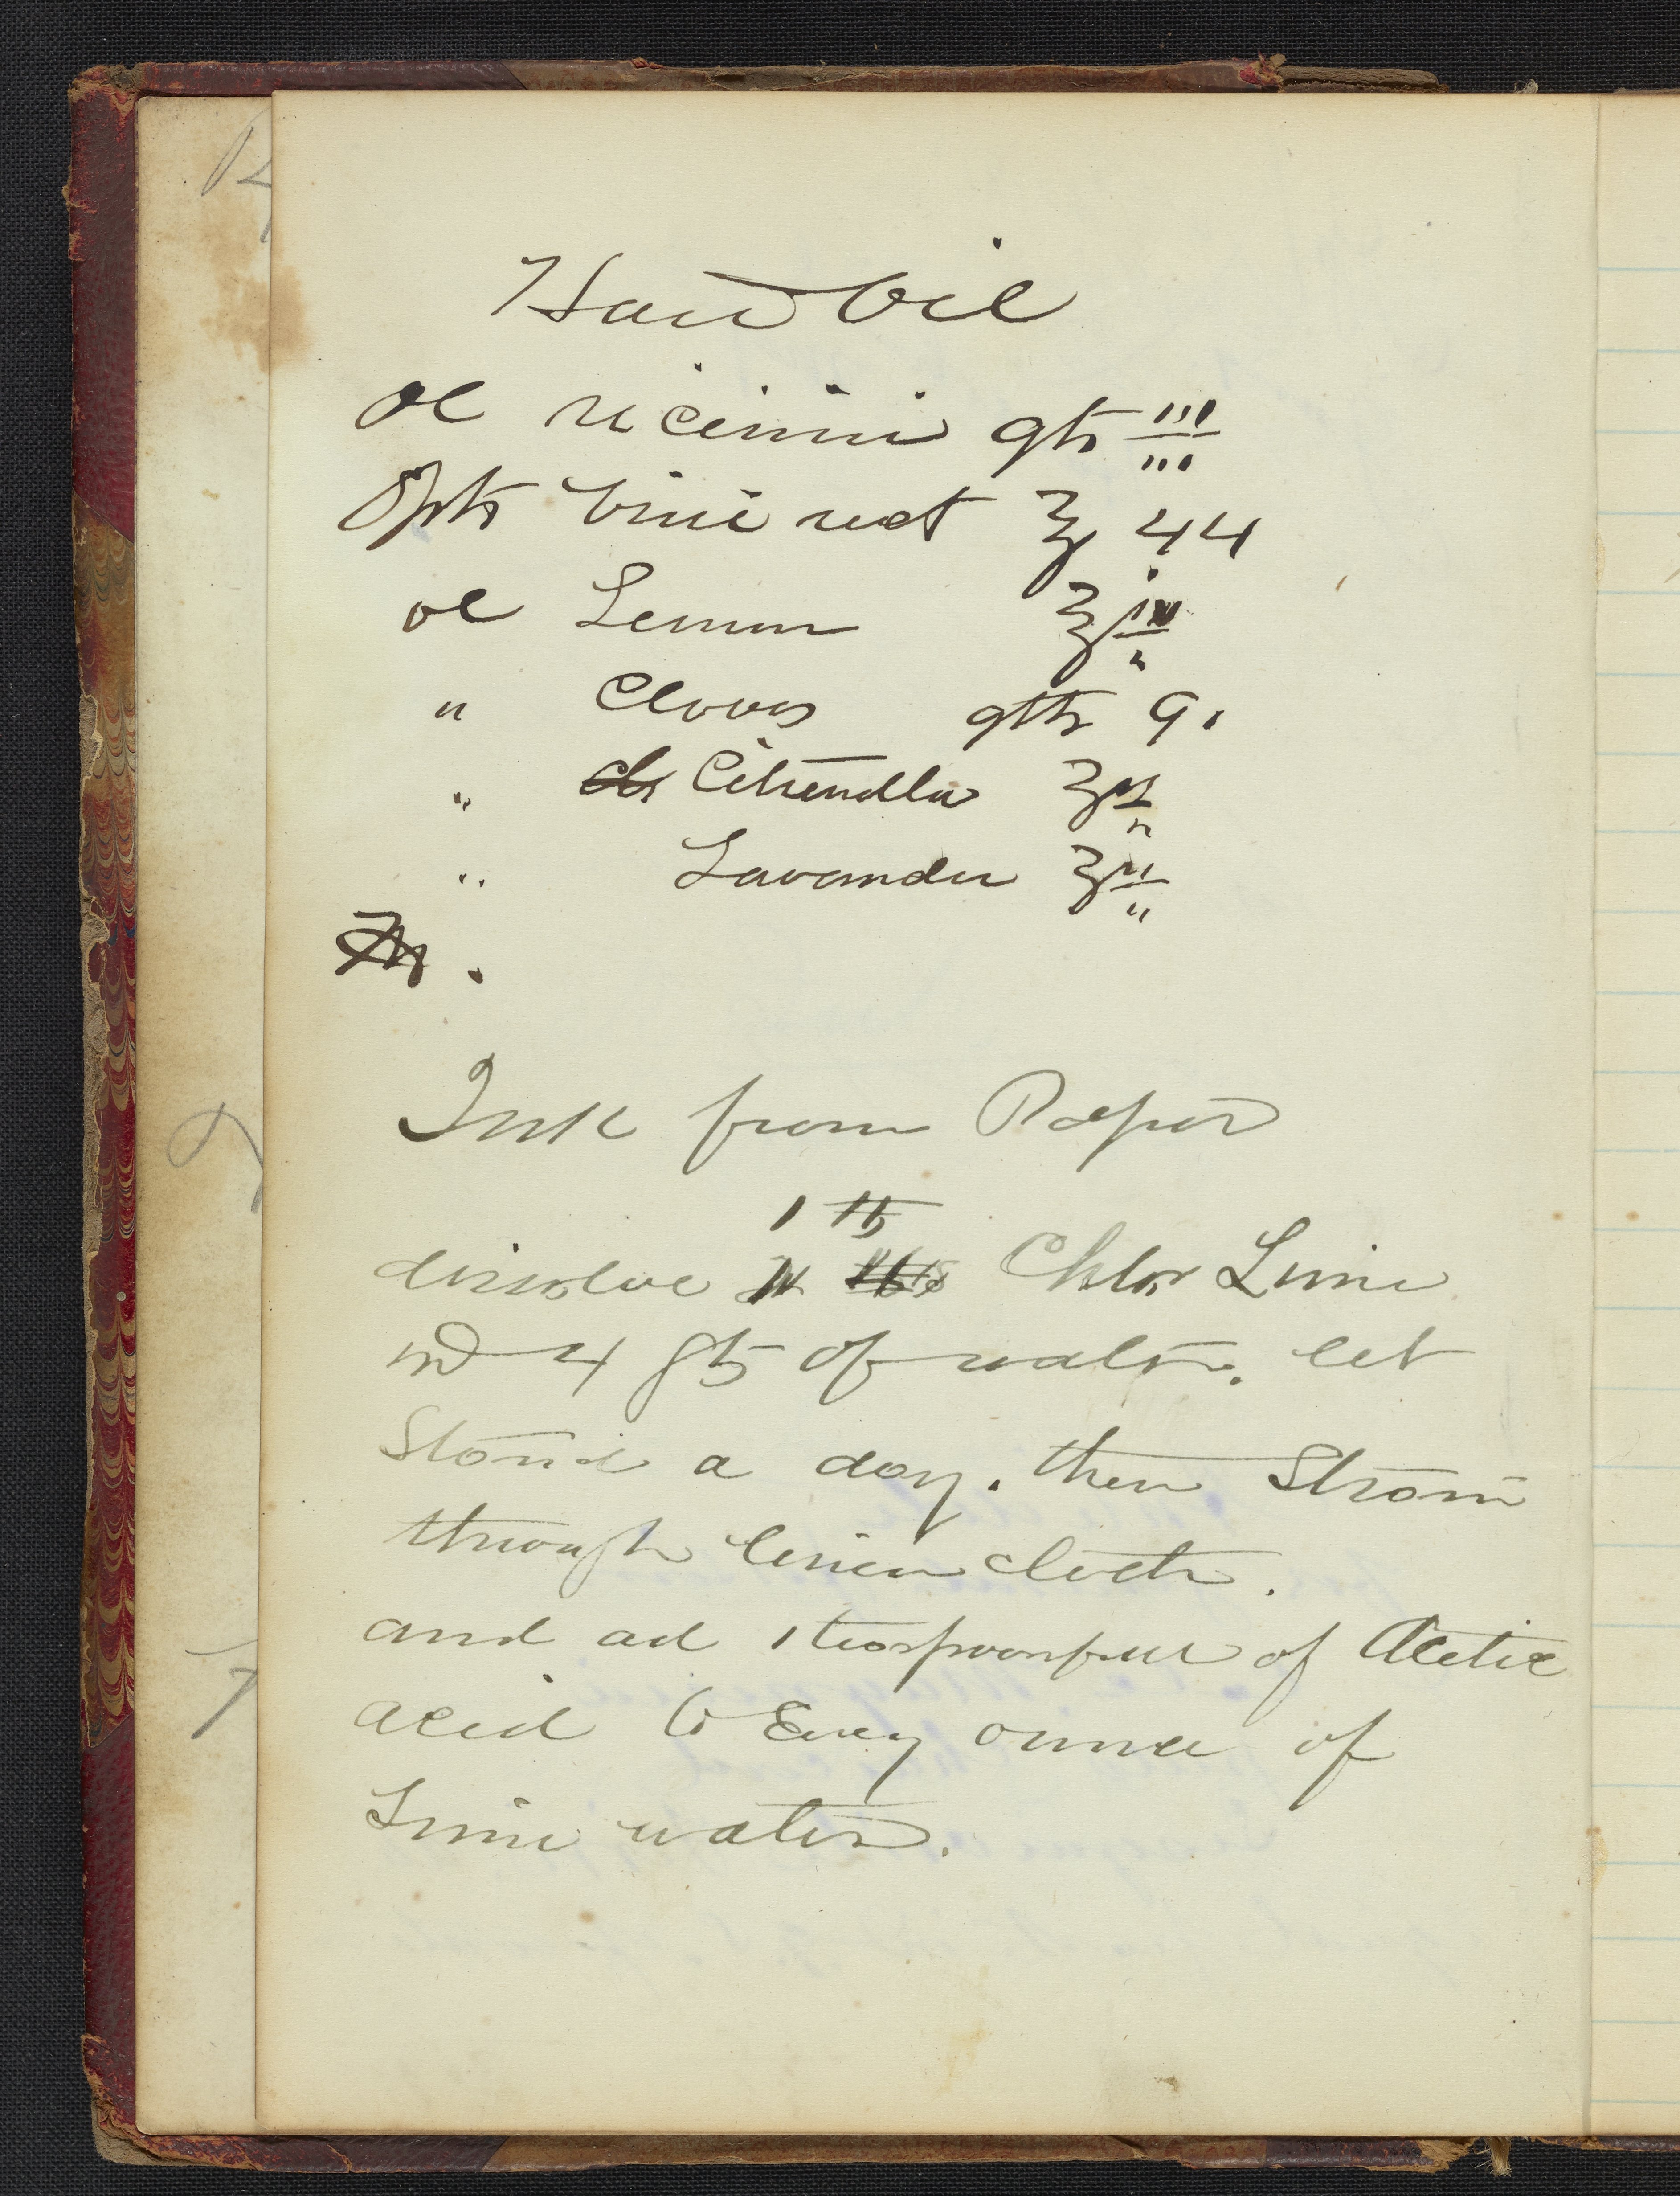 Hair Oil
Ol ricinni qts iii
Spts Vini rect ℥ 44
ol Lemon ℥ iii
" Cloves gtts 9.
" Citronella ℥ ii
" Lavander ℥ ii
Ink from Paper
1 lb
dissolve Chlor Lime
in 4 qts of water. let
Stand a day. then Strain
through linen cloth.
and ad 1 teaspoonfull of Acetic
acid to Every ounce of
Lime water.